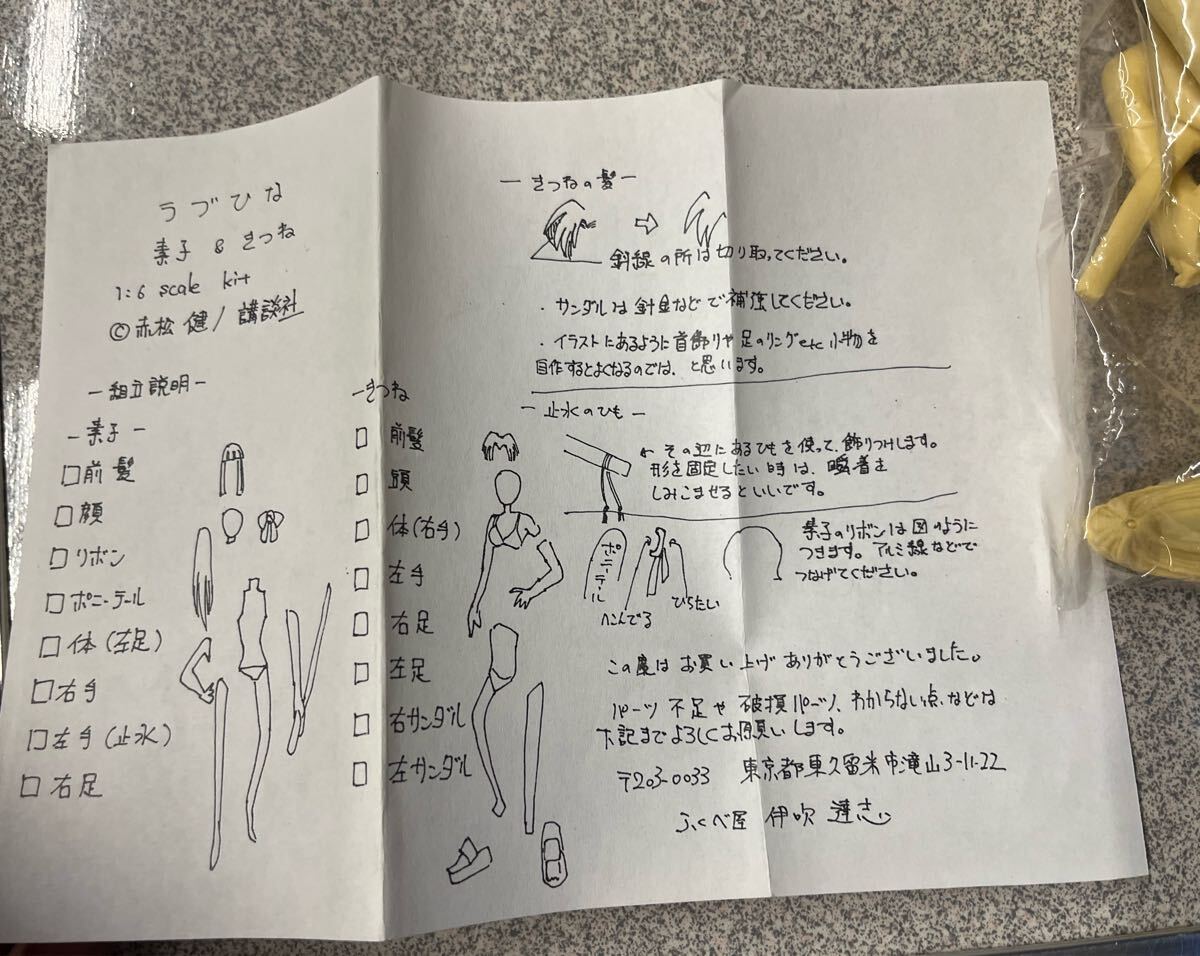 ラブひな
素子 & きつね
1:6 scale kit
©赤松 健/講談社
-組立説明-
-素子-
□前髪
□顔
□リボン
□ポニーテール
□体(左足)
□右手
□左手(止水)
□右足
-きつね
□前髪
□頭
□体(右手)
□左手
□右足
□左足
□右サンダル
□左サンダル
-きつねの髪-
⇨
斜線の所は切り取ってください。
・サンダルは針金などで補強してください。
・イラストにあるように首飾りや足のリングetc小物を
自作するとよくなるのでは、と思います。
-止水のひも-
← その辺にあるひもを使って、飾りつけします。
形を固定したい時は、瞬着を
しみこませるといいです。
ポニーテール
へこんでる
ひらたい
素子のリボンは図のように
つきます。アルミ線などで
つなげてください。
この度はお買い上げありがとうございました。
パーツ不足や破損パーツ、わからない点などは
下記までよろしくお願いします。
〒203-0033 東京都東久留米市滝山3-11-22
ふくべ屋 伊吹 達志